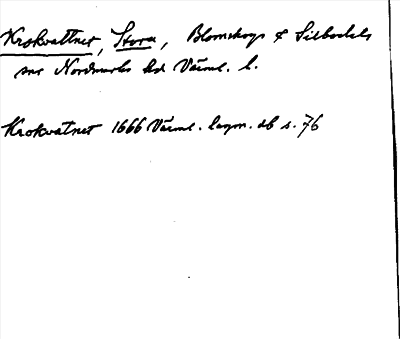 Krokvattnet, Stora, Blomskogs & Silbodals
snr Nordmarks hd Värml. l.
Krokvatnet 1666 Värml. lagm. db s. 76